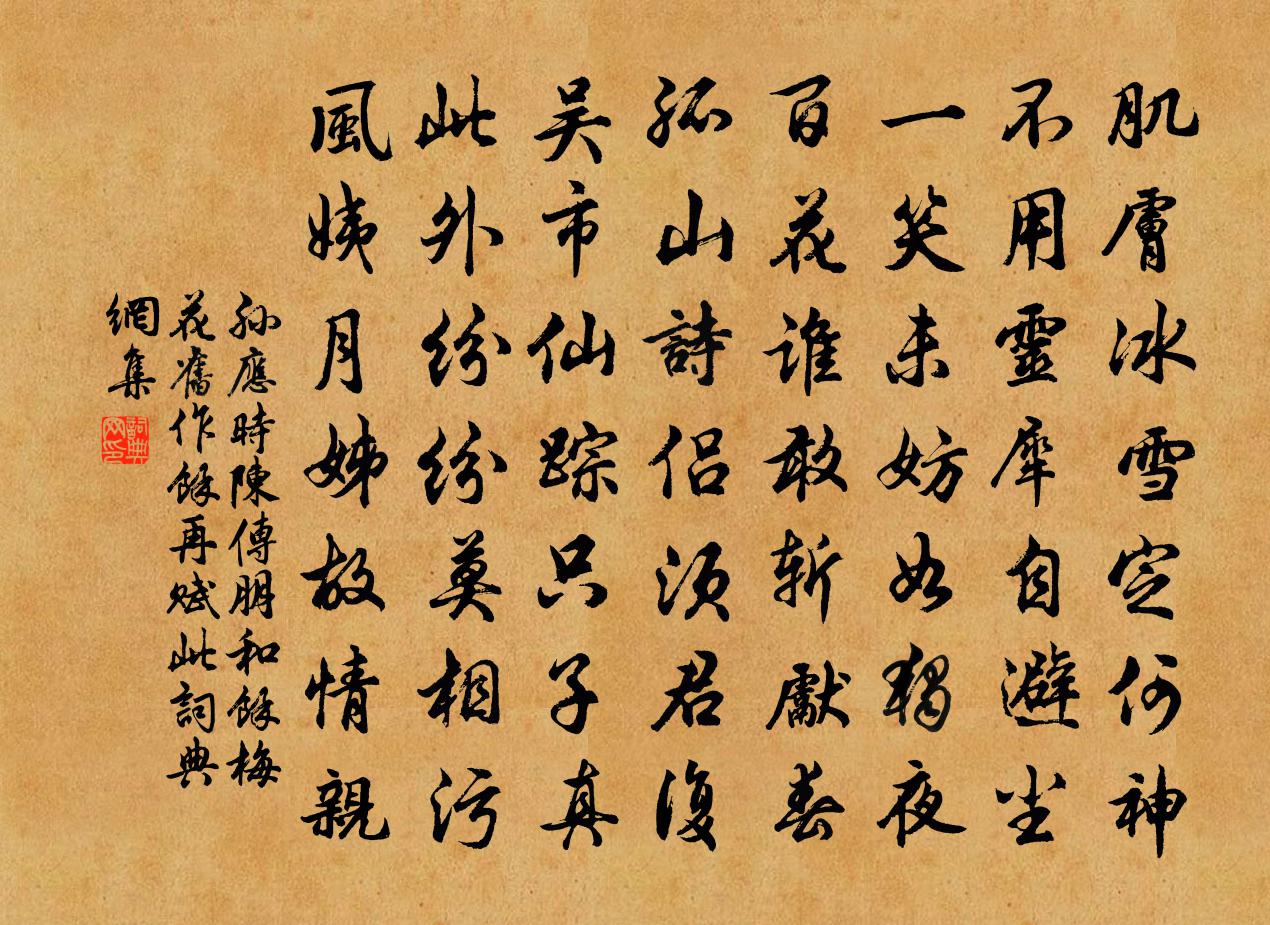 肌膚冰雪定何神
不用靈犀自避尘
一笑未妨如獨夜
百花谁敢斩獻春
孤山詩侣須君復
吴市仙踪只子真
此外纷纷莫相污
風姨月姊故情親
孙應時陳傅朋和餘梅
花舊作餘再赋此詞典
網集
詞典
网印